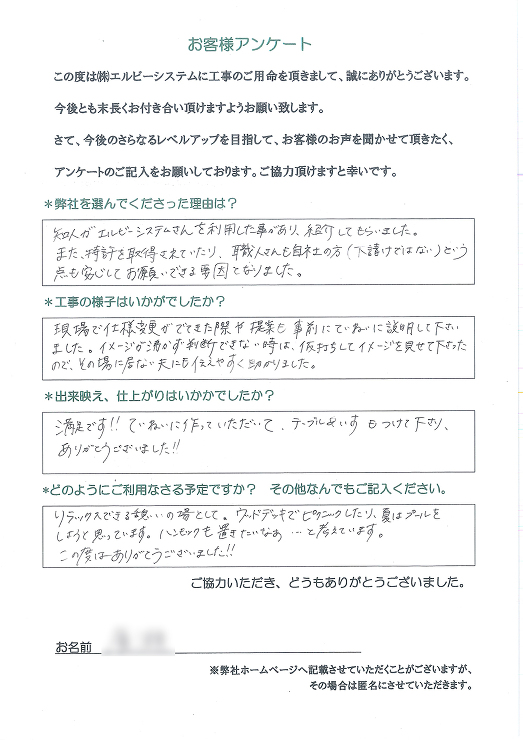 お客様アンケート
この度は㈱エルビーシステムに工事のご用命を頂きまして、誠にありがとうございます。
今後とも末長くお付き合い頂けますようお願い致します。
さて、今後のさらなるレベルアップを目指して、お客様のお声を聞かせて頂きたく、
アンケートのご記入をお願いしております。ご協力頂けますと幸いです。
＊弊社を選んでくださった理由は？
知人がエルビーシステムさんを利用した事があり、紹介してもらいました。
また、特許を取得されていたり、職人さんも自社の方（下請けではない）という
点も安心してお願いできる要因となりました。
＊工事の様子はいかがでしたか？
現場で仕様変更がでてきた際や提案も事前にていねいに説明して下さい
ました。イメージが沸かず判断できない時は、仮打ちしてイメージを見せて下さった
ので、その場に居ない夫にも伝えやすく助かりました。
＊出来映え、仕上がりはいかかでしたか？
満足です!! ていねいに作っていただいて、テーブル&いすもつけて下さり、
ありがとうございました!!
＊どのようにご利用なさる予定ですか？ その他なんでもご記入ください。
リラックスできる憩いの場として。ウッドデッキでピクニックしたり、夏はプールを
しようと思っています。ハンモックも置きたいなぁ…と考えています。
この度はありがとうございました!!
ご協力いただき、どうもありがとうございました。
お名前
※弊社ホームページへ記載させていただくことがございますが、
その場合は匿名にさせていただきます。